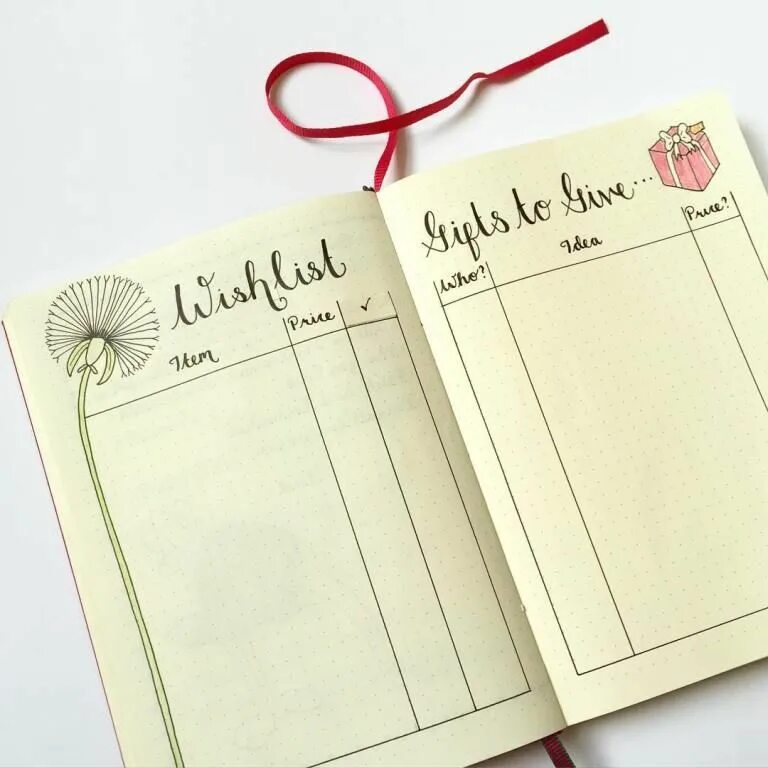 Wishlist
Item Price ✓
Gifts to Give...
Who? Idea Price?